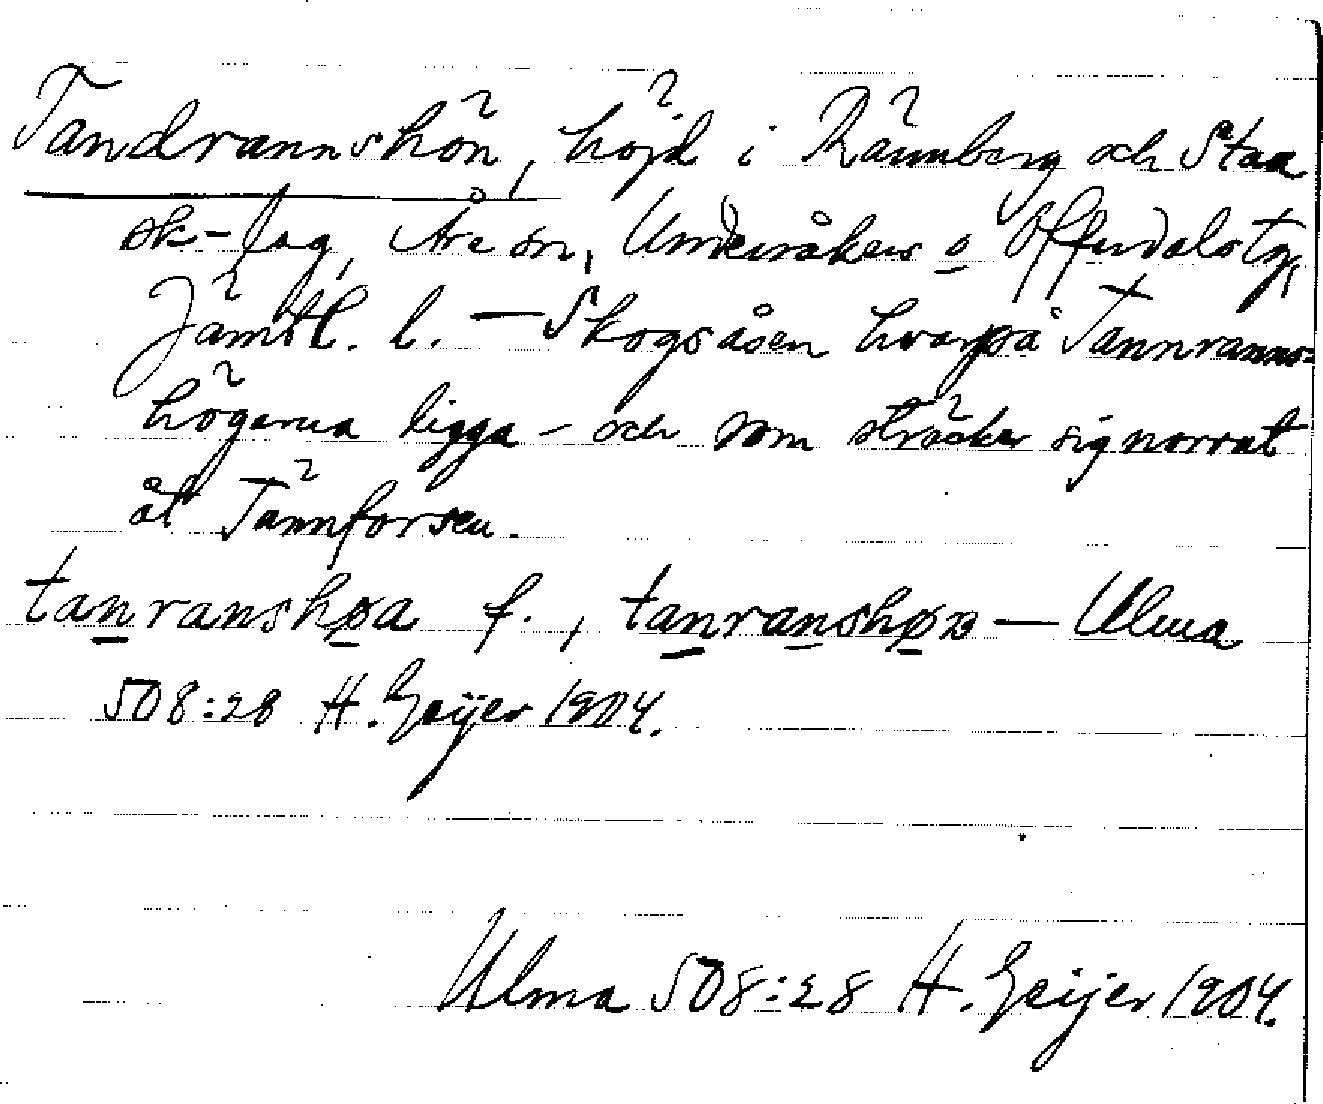 Tandrannshön, höjd i Rännberg och Staa
sk-lag, Åre sn, Undersåkers o Offerdals tg,
Jämtl. l. — Skogsåsen hvarpå Tannranns-
högarna ligga - och som sträcker sig norrut
åt Tännforsen.
tanranshøa f., tanranshøn — Ulma
508:28 H. Geijer 1904.
Ulma 508:28 H. Geijer 1904.